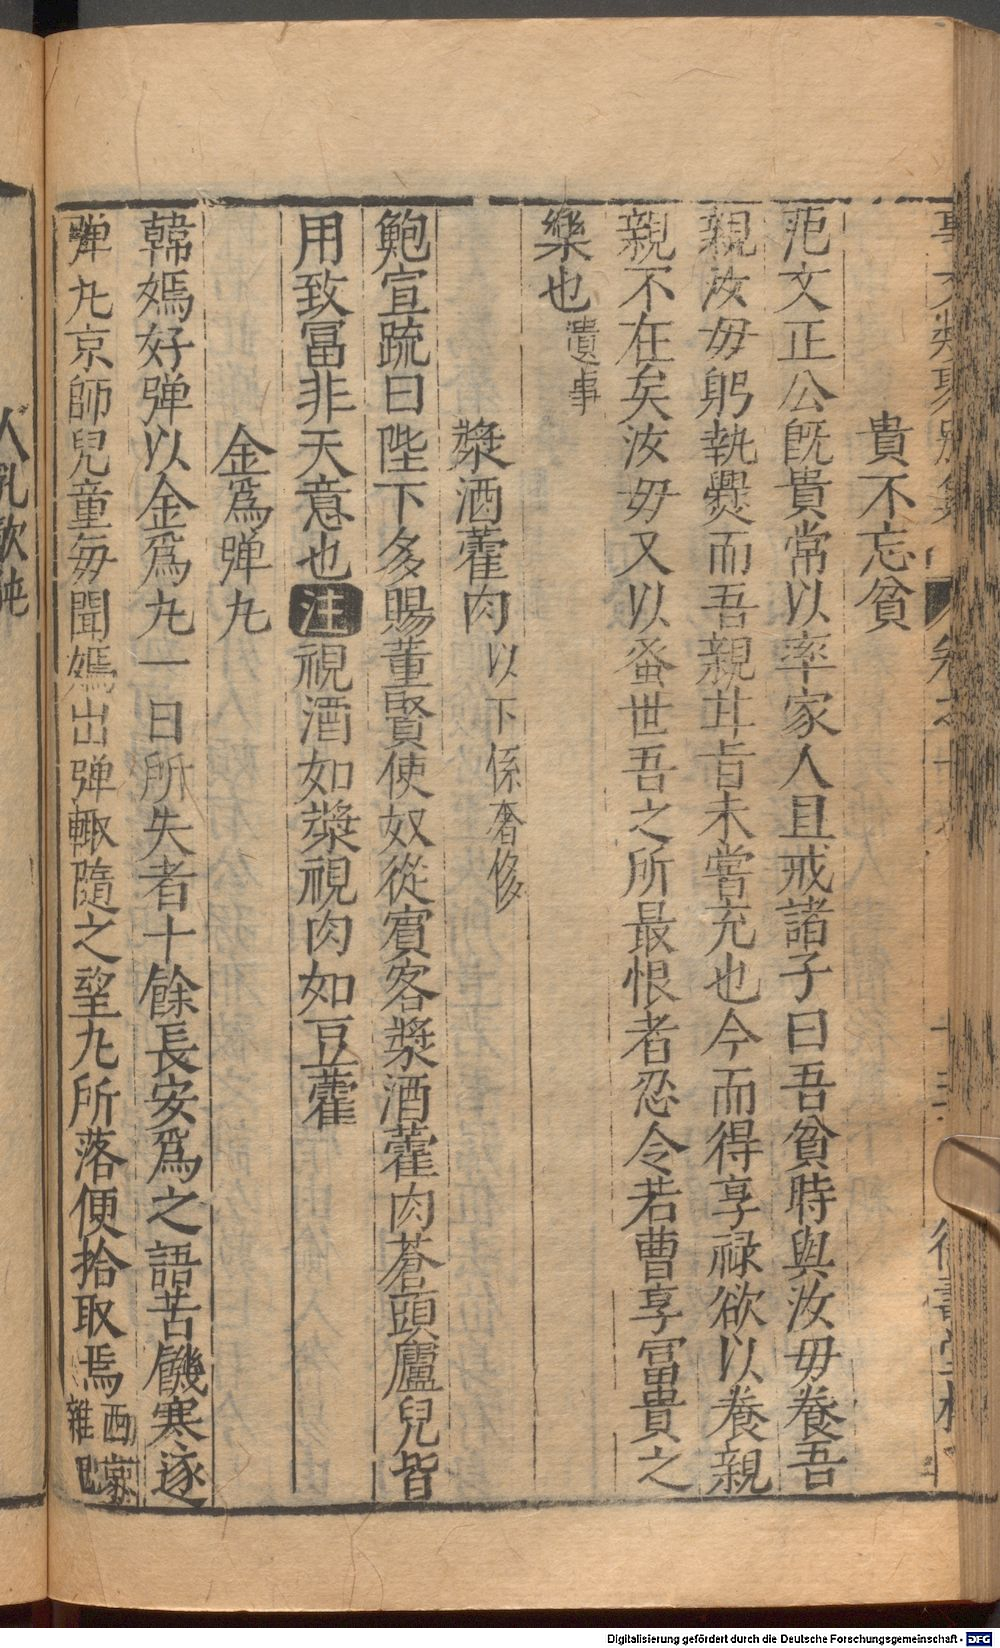 貴不忘貧
范文正公旣貴常以率家人且戒諸子曰吾貧時與汝毋養吾
親汝毋躬執爨而吾親甘旨未嘗充也今而得享禄欲以養親
親不在矣汝毋又以蚤世吾之所最恨者忍令若曹享富貴之
樂也遺事
漿酒藿肉以下係奢侈
鮑宣疏曰陛下多賜董賢使奴從賓客漿酒藿肉蒼頭廬兒皆
用致富非天意也注視酒如漿視肉如豆藿
金爲弾九
韓嫣好弾以金爲九一日所失者十餘長安爲之語苦饑寒逐
弾九京師兒童每聞嫣出弾輙隨之望九所落便拾取焉西京雜記
人乳飲㹠
Digitalisierung gefördert durch die Deutsche Forschungsgemeinschaft - DFG